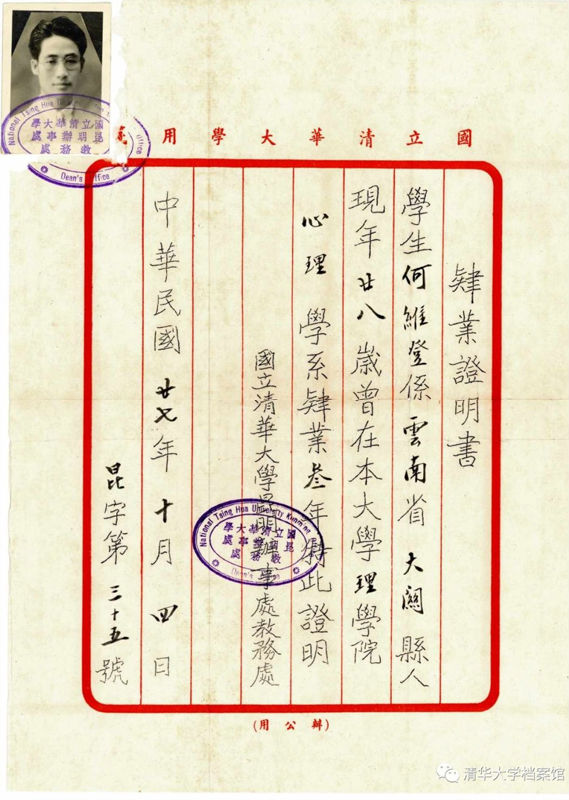 國立清華大學用
肄業證明書
學生何維登係雲南省大關縣人
現年廿八歲曾在本大學理學院
心理學系肄業叁年特此證明
國立清華大學昆明辦事處教務處
中華民國廿七年十月四日
昆字第三十五號
(辦公用)
National Tsing Hua Office
國立清華大學
昆明辦事處
教務處
Dean's Office
National Tsing Hua University Kunming
國立清華大學
昆明辦事處
教務處
Dean's
清华大学档案馆